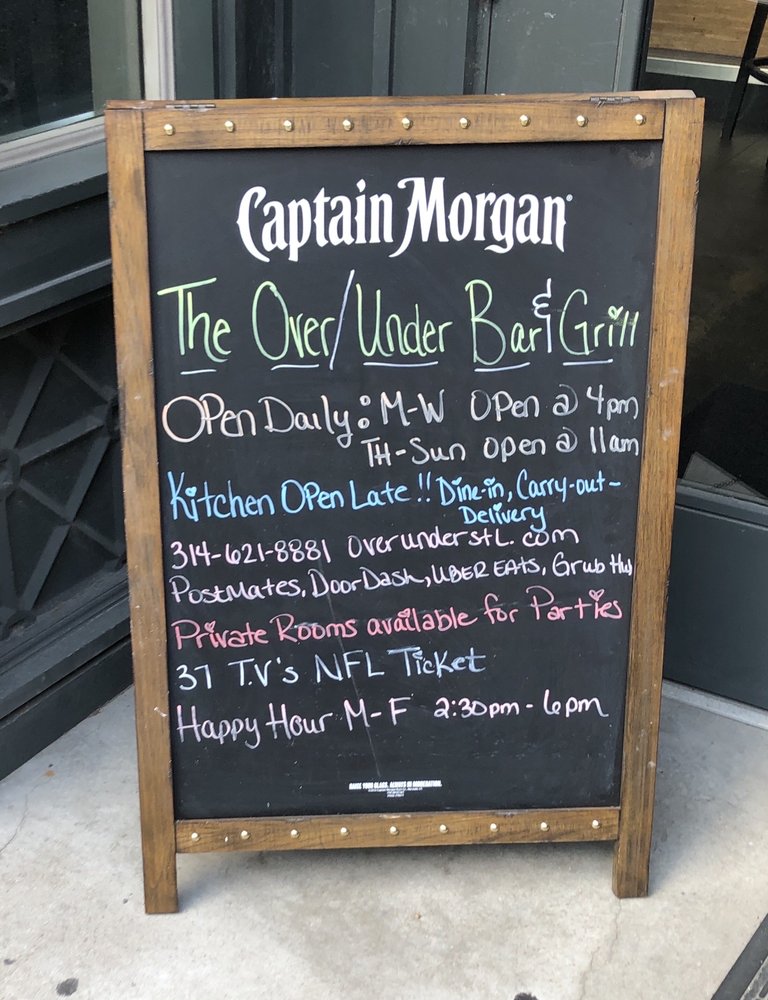 Captain Morgan
The Over/Under Bar & Grill
Open Daily: M-W Open @ 4pm
TH-Sun open @ 11am
Kitchen Open Late!! Dine-in, Carry-out-
Delivery
314-621-8881 overunderstl.com
PostMates, DoorDash, UBER EATS, Grub Hub
Private Rooms available for Parties
37 T.V's NFL Ticket
Happy Hour M-F 2:30pm - 6pm
RAISE YOUR GLASS. ALWAYS IN MODERATION.